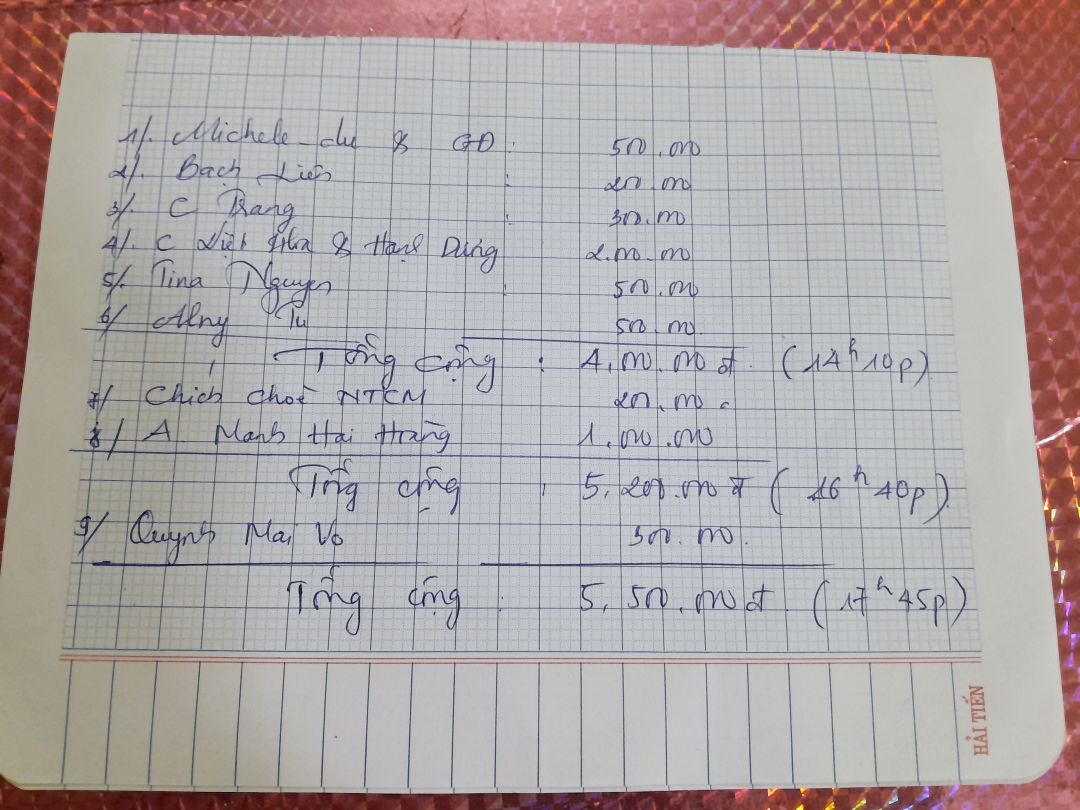 1/. Michele-chu & GĐ : 500.000
2/. Bạch Liên : 200.000
3/. C Trang : 300.000
4/. C Việt & Hạnh Dung 2.000.000
5/. Tina Nguyen : 500.000
6/ Tu 500.000
Tổng cộng : 4.000.000đ (14h10p)
7/ Chích choè NTCM 200.000
8/ A. Manh Hai Hoàng 1.000.000
Tổng cộng : 5.200.000đ (16h40p)
9/ Quynh Mai Vo 300.000
Tổng cộng : 5.500.000đ (17h45p)
HẢI TIẾN